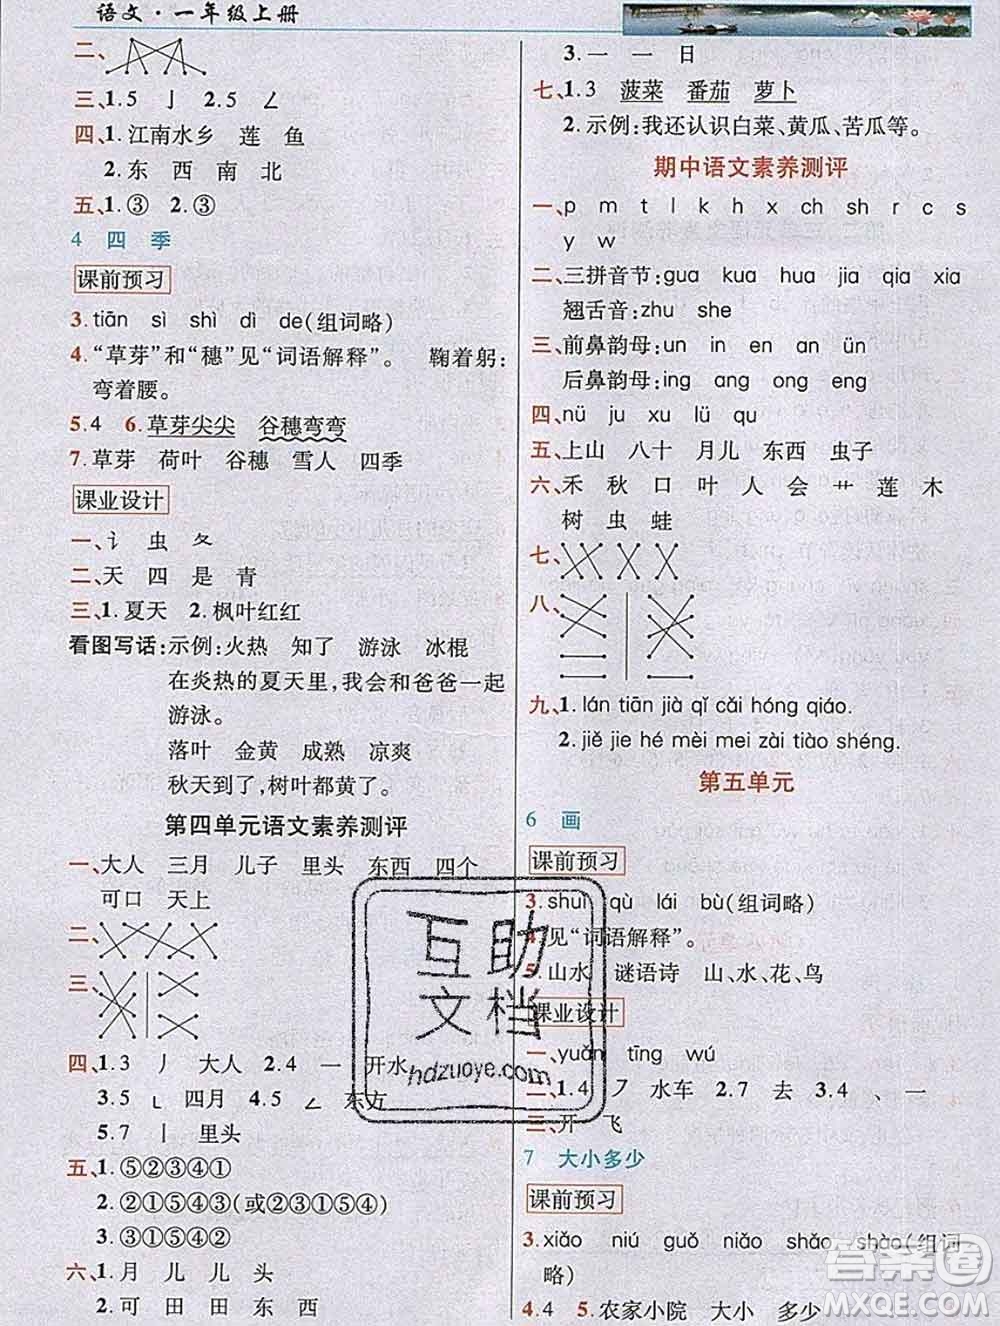 语文·一年级上册
二、
三、1.5 亅 2.5 ㄥ
四、1.江南水乡 莲 鱼
2.东 西 南 北
五、1.③ 2.③
4 四 季
课前预习
3.tiān sì shì dì de(组词略)
4.“草芽”和“穗”见“词语解释”。 鞠着躬:
弯着腰。
5.4 6.草芽尖尖 谷穗弯弯
7.草芽 荷叶 谷穗 雪人 四季
课业设计
一、讠 虫 夂
二、天 四 是 青
三、1.夏天 2.枫叶红红
看图写话:示例:火热 知了 游泳 冰棍
在炎热的夏天里,我会和爸爸一起
游泳。
落叶 金黄 成熟 凉爽
秋天到了,树叶都黄了。
第四单元语文素养测评
一、大人 三月 儿子 里头 东西 四个
可口 天上
二、
三、
四、1.3 丿 大人 2.4 一 开水
3.5 ㇄ 四月 4.5 ㄥ 东方
5.7 丨 里头
五、1.⑤②③④①
2.②①⑤④③(或②③①⑤④)
3.③①⑤④②
六、1.月 儿 儿 头
2.可 田 田 东 西
3.一 一 日
七、1.3 菠菜 番茄 萝卜
2.示例:我还认识白菜、黄瓜、苦瓜等。
期中语文素养测评
一、p m t l k h ch sh r c s
y w
二、三拼音节:gua kua hua jia qia xia
翘舌音:zhu she
三、前鼻韵母:un in en an ün
后鼻韵母:ing ang ong eng
四、nü ju xu lü qu
五、上山 八十 月儿 东西 虫子
六、禾 秋 口 叶 人 会 艹 莲 木
树 虫 蛙
七、
八、
九、1.lán tiān jià qǐ cǎi hóng qiáo.
2.jiě jie hé mèi mei zài tiào shéng.
第五单元
6 画
课前预习
3.shuǐ qù lái bù(组词略)
4.见“词语解释”。
5.山水 谜语诗 山、水、花、鸟
课业设计
一、yuǎn tīng wú
二、1.4 ㇇ 水车 2.7 去 3.4 、 一
三、开 飞
7 大小多少
课前预习
3.xiǎo niú guǒ niǎo shǎo shào(组词
略)
4.4 5.农家小院 大小 多少
互助
文档
hdzuoye.com
答案圈
MXQE.COM